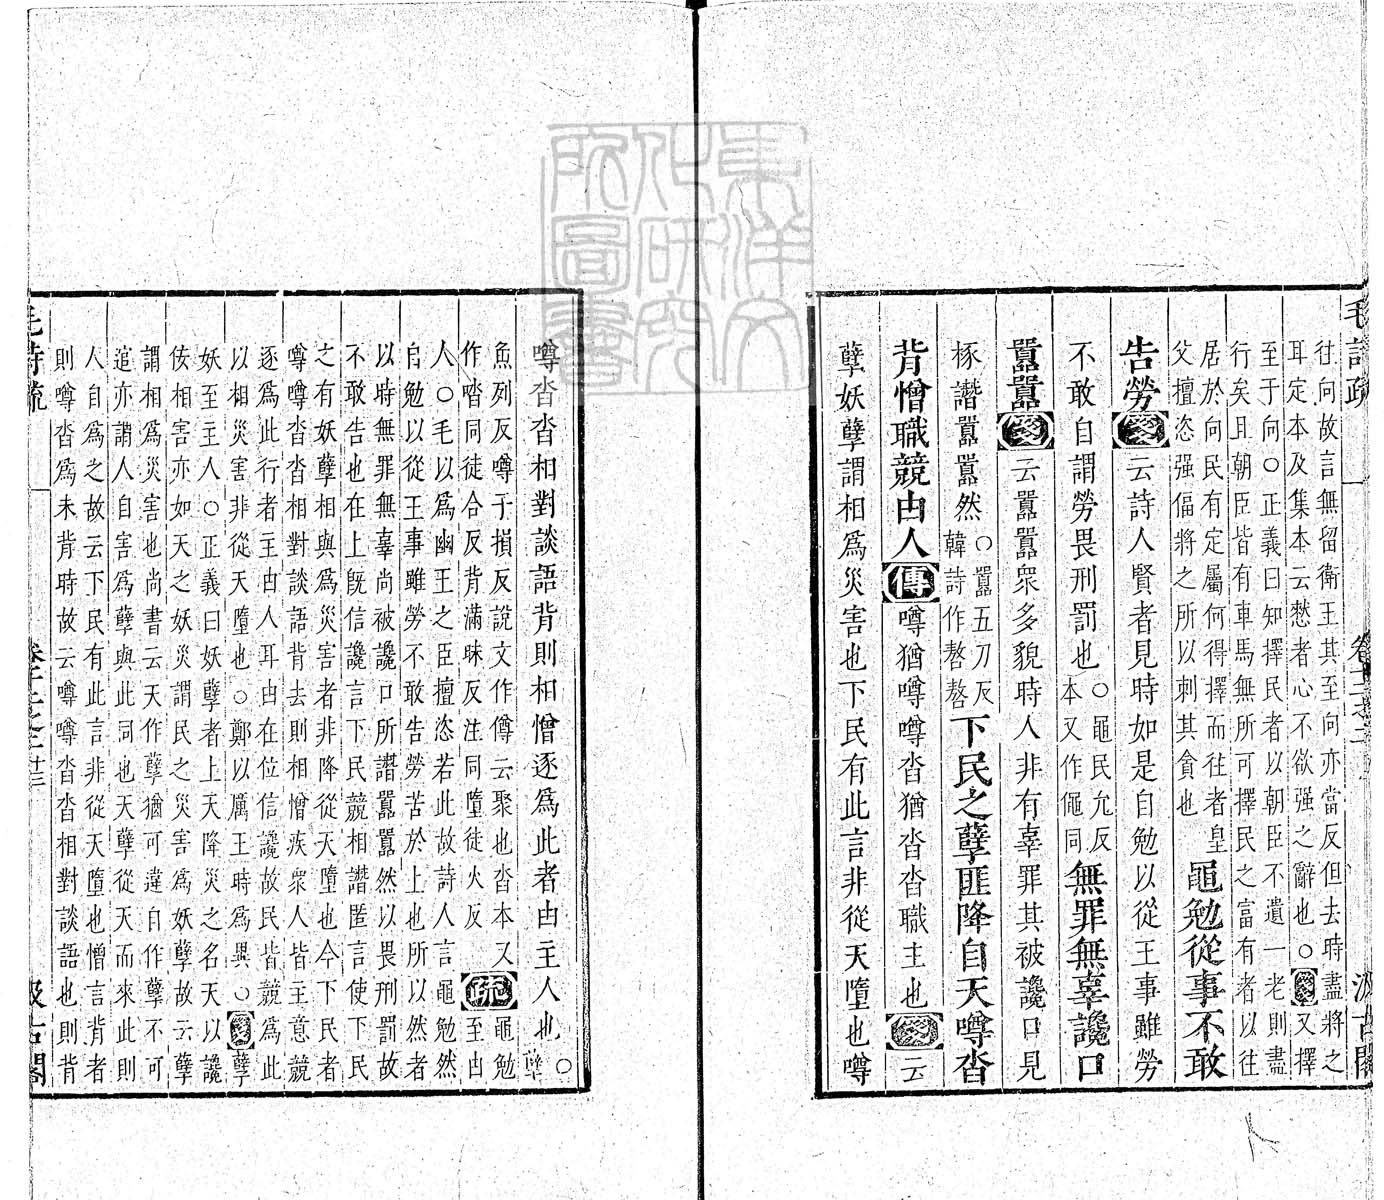 毛詩疏 卷十二之二 汲古閣
往向故言無留衛王其至向亦當反但去時盡將之
耳定本及集本云憖者心不欲强之辭也○箋又擇
至于向○正義曰知擇民者以朝臣不遺一老則盡
行矣且朝臣皆有車馬無所可擇民之富有者以往
居於向民有定屬何得擇而往者皇
父擅恣强偪將之所以刺其貪也
黽勉從事不敢
告勞箋云詩人賢者見時如是自勉以從王事雖勞
不敢自謂勞畏刑罰也
○黽民允反
本又作僶同
無罪無辜讒口
囂囂箋云囂囂衆多貌時人非有辜罪其被讒口見
椓譖囂囂然
○囂五刀反
韓詩作嗸嗸
下民之孽匪降自天噂沓
背憎職競由人傳噂猶噂噂沓猶沓沓職主也箋云
孽妖孽謂相爲災害也下民有此言非從天墮也噂
噂沓沓相對談語背則相憎逐爲此者由主人也
○
孽
魚列反噂子損反說文作僔云聚也沓本又
作嗒同徒合反背滿昧反注同墮徒火反
疏
黽勉
至由
人○毛以爲幽王之臣擅恣若此故詩人言黽勉然
自勉以從王事雖勞不敢告勞苦於上也所以然者
以時無罪無辜尚被讒口所譖囂囂然以畏刑罰故
不敢告也在上旣信讒言下民競相譖匿言使下民
之有妖孽相與爲災害者非降從天墮也今下民者
噂噂沓沓相對談語背去則相憎疾衆人皆主意競
逐爲此行者主由人耳由在位信讒故民皆競爲此
以相災害非從天墮也○鄭以厲王時爲異○箋孽
妖至主人○正義曰妖孽者上天降災之名天以讒
佞相害亦如天之妖災謂民之災害爲妖孽故云孽
謂相爲災害也尚書云天作孽猶可違自作孽不可
逭亦謂人自害爲孽與此同也天孽從天而來此則
人自爲之故云下民有此言非從天墮也憎言背者
則噂沓爲未背時故云噂噂沓沓相對談語也則背
毛詩疏 卷十二之二 十三 汲古閣
東洋文
化研究
所圖書